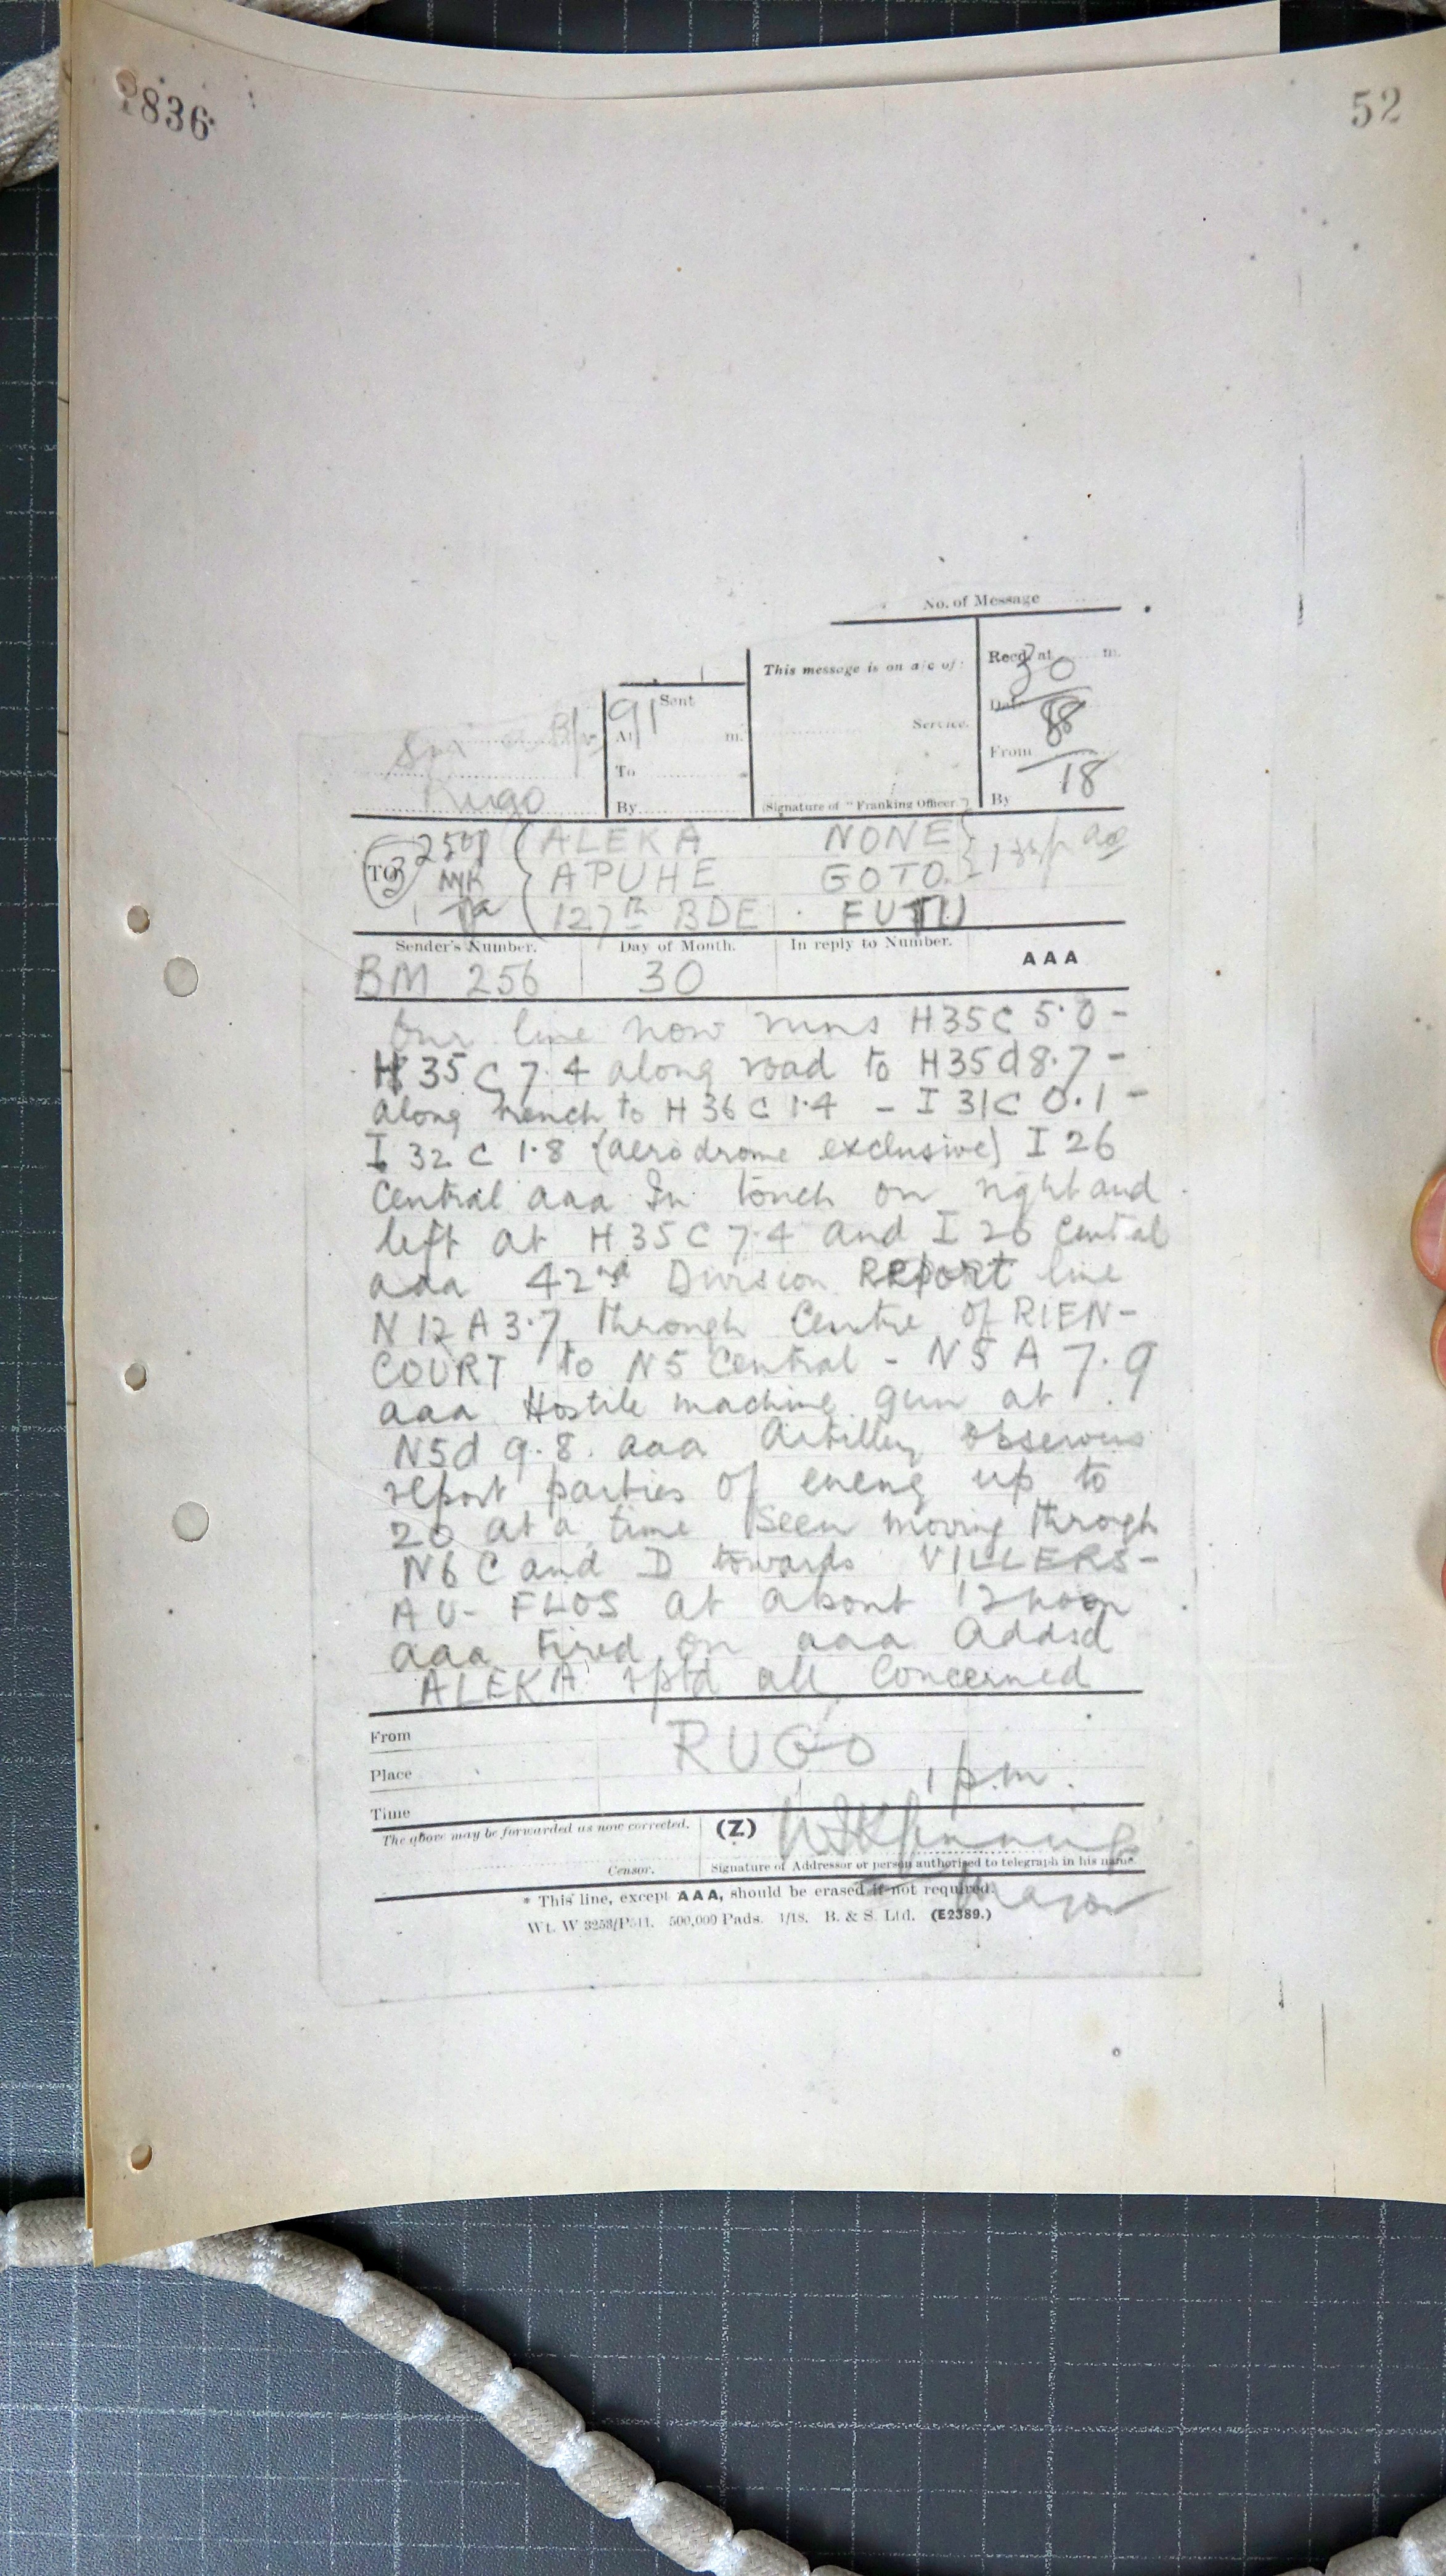 1836
52
No. of Message
This message is on a/c of:
Recd. at m.
30
Sent
91
At m.
Date
8
Service.
From
18
To
Rugo
By
(Signature of "Franking Officer.")
By
TO
ALEKA NONE
APUHE GOTO
127th BDE FUTU
Sender's Number. Day of Month. In reply to Number. AAA
BM 256 30
Our line now runs H35C 5.0 -
H35C 7.4 along road to H35d 8.7 -
along trench to H36C 1.4 - I 31C 0.1 -
I 32 C 1.8 (aerodrome exclusive) I 26
Central aaa In touch on right and
left at H35C 7.4 and I 26 Central
aaa 42nd Division REPORT line
N 12 A 3.7 through Centre of RIEN-
COURT to N5 Central - N5 A 7.9
aaa Hostile machine gun at
N5d 9.8. aaa Artillery observers
report parties of enemy up to
20 at a time seen moving through
N6 C and D towards VILLERS-
AU-FLOS at about 12 noon
aaa Fired on aaa Addsd
ALEKA rptd all Concerned
From RUGO
Place
1 p.m.
Time
The above may be forwarded as now corrected. (Z)
Censor. Signature of Addressor or person authorised to telegraph in his name.
Major
* This line, except AAA, should be erased if not required.
500,000 Pads. 1/18. B. & S. Ltd. (E2389.)